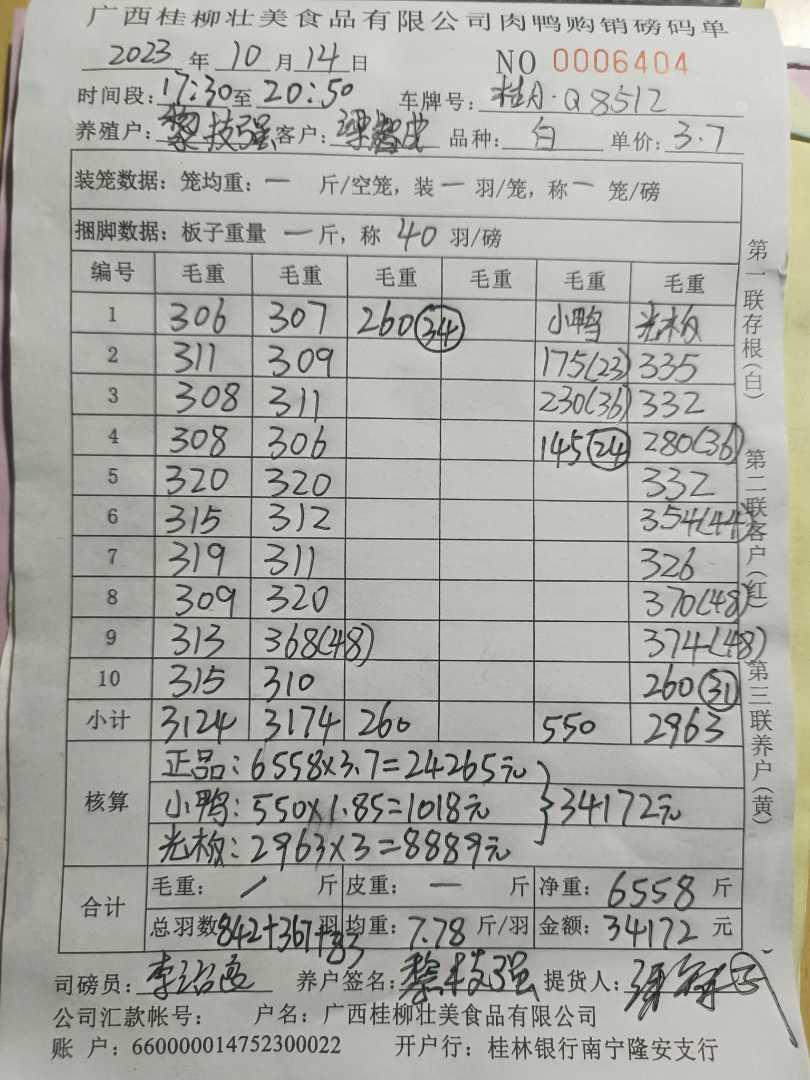 广西桂柳壮美食品有限公司肉鸭购销磅码单
2023 年 10 月 14 日 NO 0006404
时间段: 17:30 至 20:50 车牌号: 桂A·Q8512
养殖户: 黎技强 客户: 品种: 白 单价: 3.7
装笼数据: 笼均重: 一 斤/空笼, 装 一 羽/笼, 称 一 笼/磅
捆脚数据: 板子重量 一 斤, 称 40 羽/磅
编号 毛重 毛重 毛重 毛重 毛重 毛重
1 306 307 260(34) 小鸭 光板
2 311 309 175(23) 335
3 308 311 230(36) 332
4 308 306 145(24) 280(36)
5 320 320 332
6 315 312 354(44)
7 319 311 326
8 309 320 370(48)
9 313 368(48) 374(48)
10 315 310 260(31)
小计 3124 3174 260 550 2963
核算 正品: 6558×3.7=24265元
小鸭: 550×1.85=1018元 }34172元
光板: 2963×3=8889元
合计 毛重: / 斤 皮重: 一 斤 净重: 6558 斤
总羽数 842+367+83 羽 均重: 7.78 斤/羽 金额: 34172 元
司磅员: 养户签名: 黎技强 提货人:
公司汇款帐号: 户名: 广西桂柳壮美食品有限公司
账 户: 660000014752300022 开户行: 桂林银行南宁隆安支行
第一联存根(白)
第二联客户(红)
第三联养户(黄)